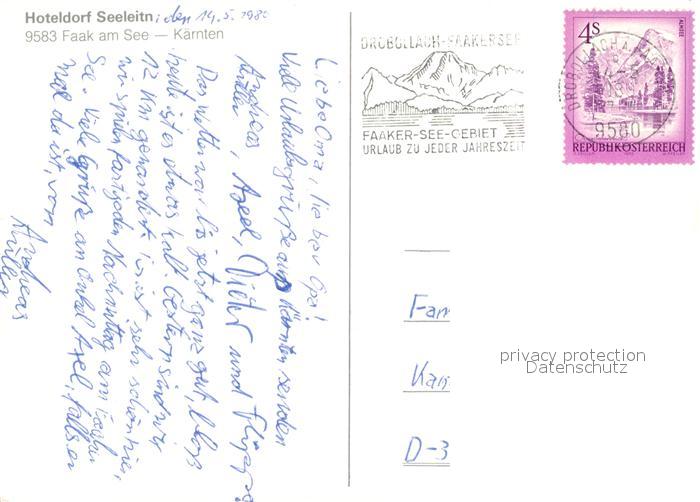 Hoteldorf Seeleitn
9583 Faak am See — Kärnten
, den 14.5.1980
Liebe Oma, lieber Opa!
Viele Urlaubsgrüße aus Kärnten senden
Andreas, Axel, und
Das Wetter war bis jetzt ganz gut, bloß
heut ist es etwas kalt. Gestern sind wir
12 Km gewandert. ist sehr schön hier,
wir spielen fast jeden Nachmittag am
See. Viele Grüße an Onkel Axel, falls er
mal da ist, von
Andreas
DROBOLLACH-FAAKERSEE
FAAKER-SEE-GEBIET
URLAUB ZU JEDER JAHRESZEIT
4S
ALMSEE
9580
REPUBLIK ÖSTERREICH
Fam
Kan
D-3
privacy protection
Datenschutz